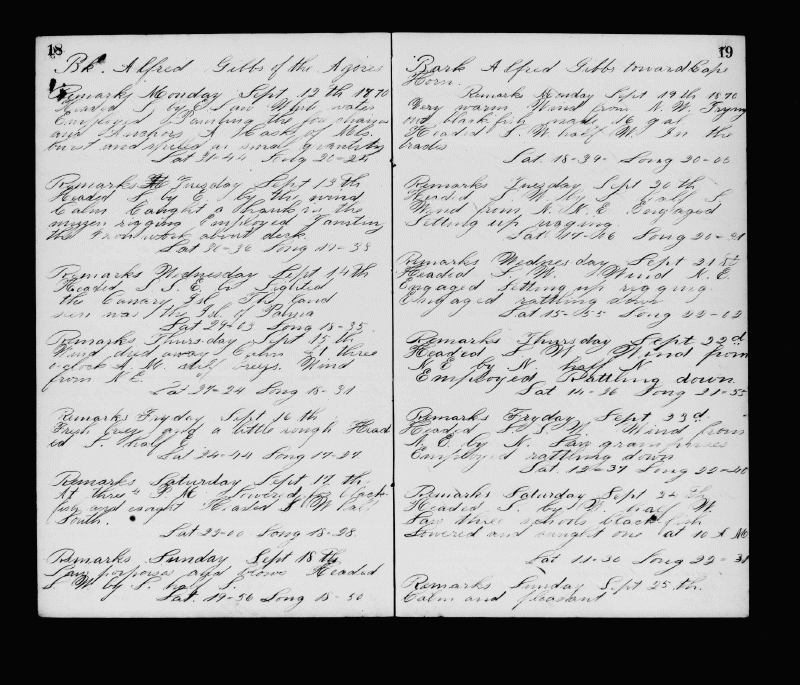 18
Bk. Alfred Gibbs of the Agores
Remarks Monday Sept 12th 1870
Headed S by E Saw White water
Employed Painting the fore chains
and Anchors A Cask of Mls.
burst and spiled a small quantity
Lat 31-44 Long 20-25
Remarks Tuesday Sept 13th
Headed S by E by the wind
Calm Caught a shark in the
mizzen rigging Employed Painting
the Iron work about deck
Lat 30-36 Long 19-33
Remarks Wednesday Sept 14th
Headed S S. E. Sighted
the Canary Isl. The land
seen was the Isl. of Palma
Lat 29-03 Long 18-35
Remarks Thursday Sept 15th
Wind died away Calm At three
oclock A. M. stiff breys. Wind
from N. E.
Lat 27-24 Long 18-31
Remarks Fryday Sept 16th
Fresh breys and a little rough Head
ed S. half E
Lat 24-44 Long 17-27
Remarks Saturday Sept 17th
At three P. M. Lowered for black
fish and caught Headed S W half
South.
Lat 22-00 Long 18-28
Remarks Sunday Sept 18th
Saw porpoises and brown Headed
S W. by S. half S.
Lat. 19-56 Long 18-50
19
Bark Alfred Gibbs toward Cape
Horn.
Remarks Monday Sept 19th 1870
Very warm Wind from N. W. Trying
out blackfish made 16 gal
Headed S. W half W. In the
trades
Lat. 18-39- Long 20-06
Remarks Tuesday Sept 20th
Headed S. W by S half S.
Wind from N. N. E. Engaged
Setting up rigging.
Lat. 17-06 Long 20-31
Remarks Wednesday Sept 21st
Headed S. W. Wind N. E.
Engaged setting up rigging.
Engaged rattling down
Lat 15-55 Long 22-02
Remarks Thursday Sept 22d
Headed S W Wind from
N E by N half N
Employed Rattling down
Lat 14-36 Long 21-55
Remarks Fryday Sept 23d
Headed S. S W. Wind from
N. E. by N. Saw grampuses
Employed rattling down
Lat. 12-37 Long 22-40
Remarks Saturday Sept 24th
Headed S. by W half W.
Saw three schools blackfish
Lowered and caught one at 10 A M
Lat 11-30 Long 22-31
Remarks Sunday Sept 25th.
Calm and pleasant